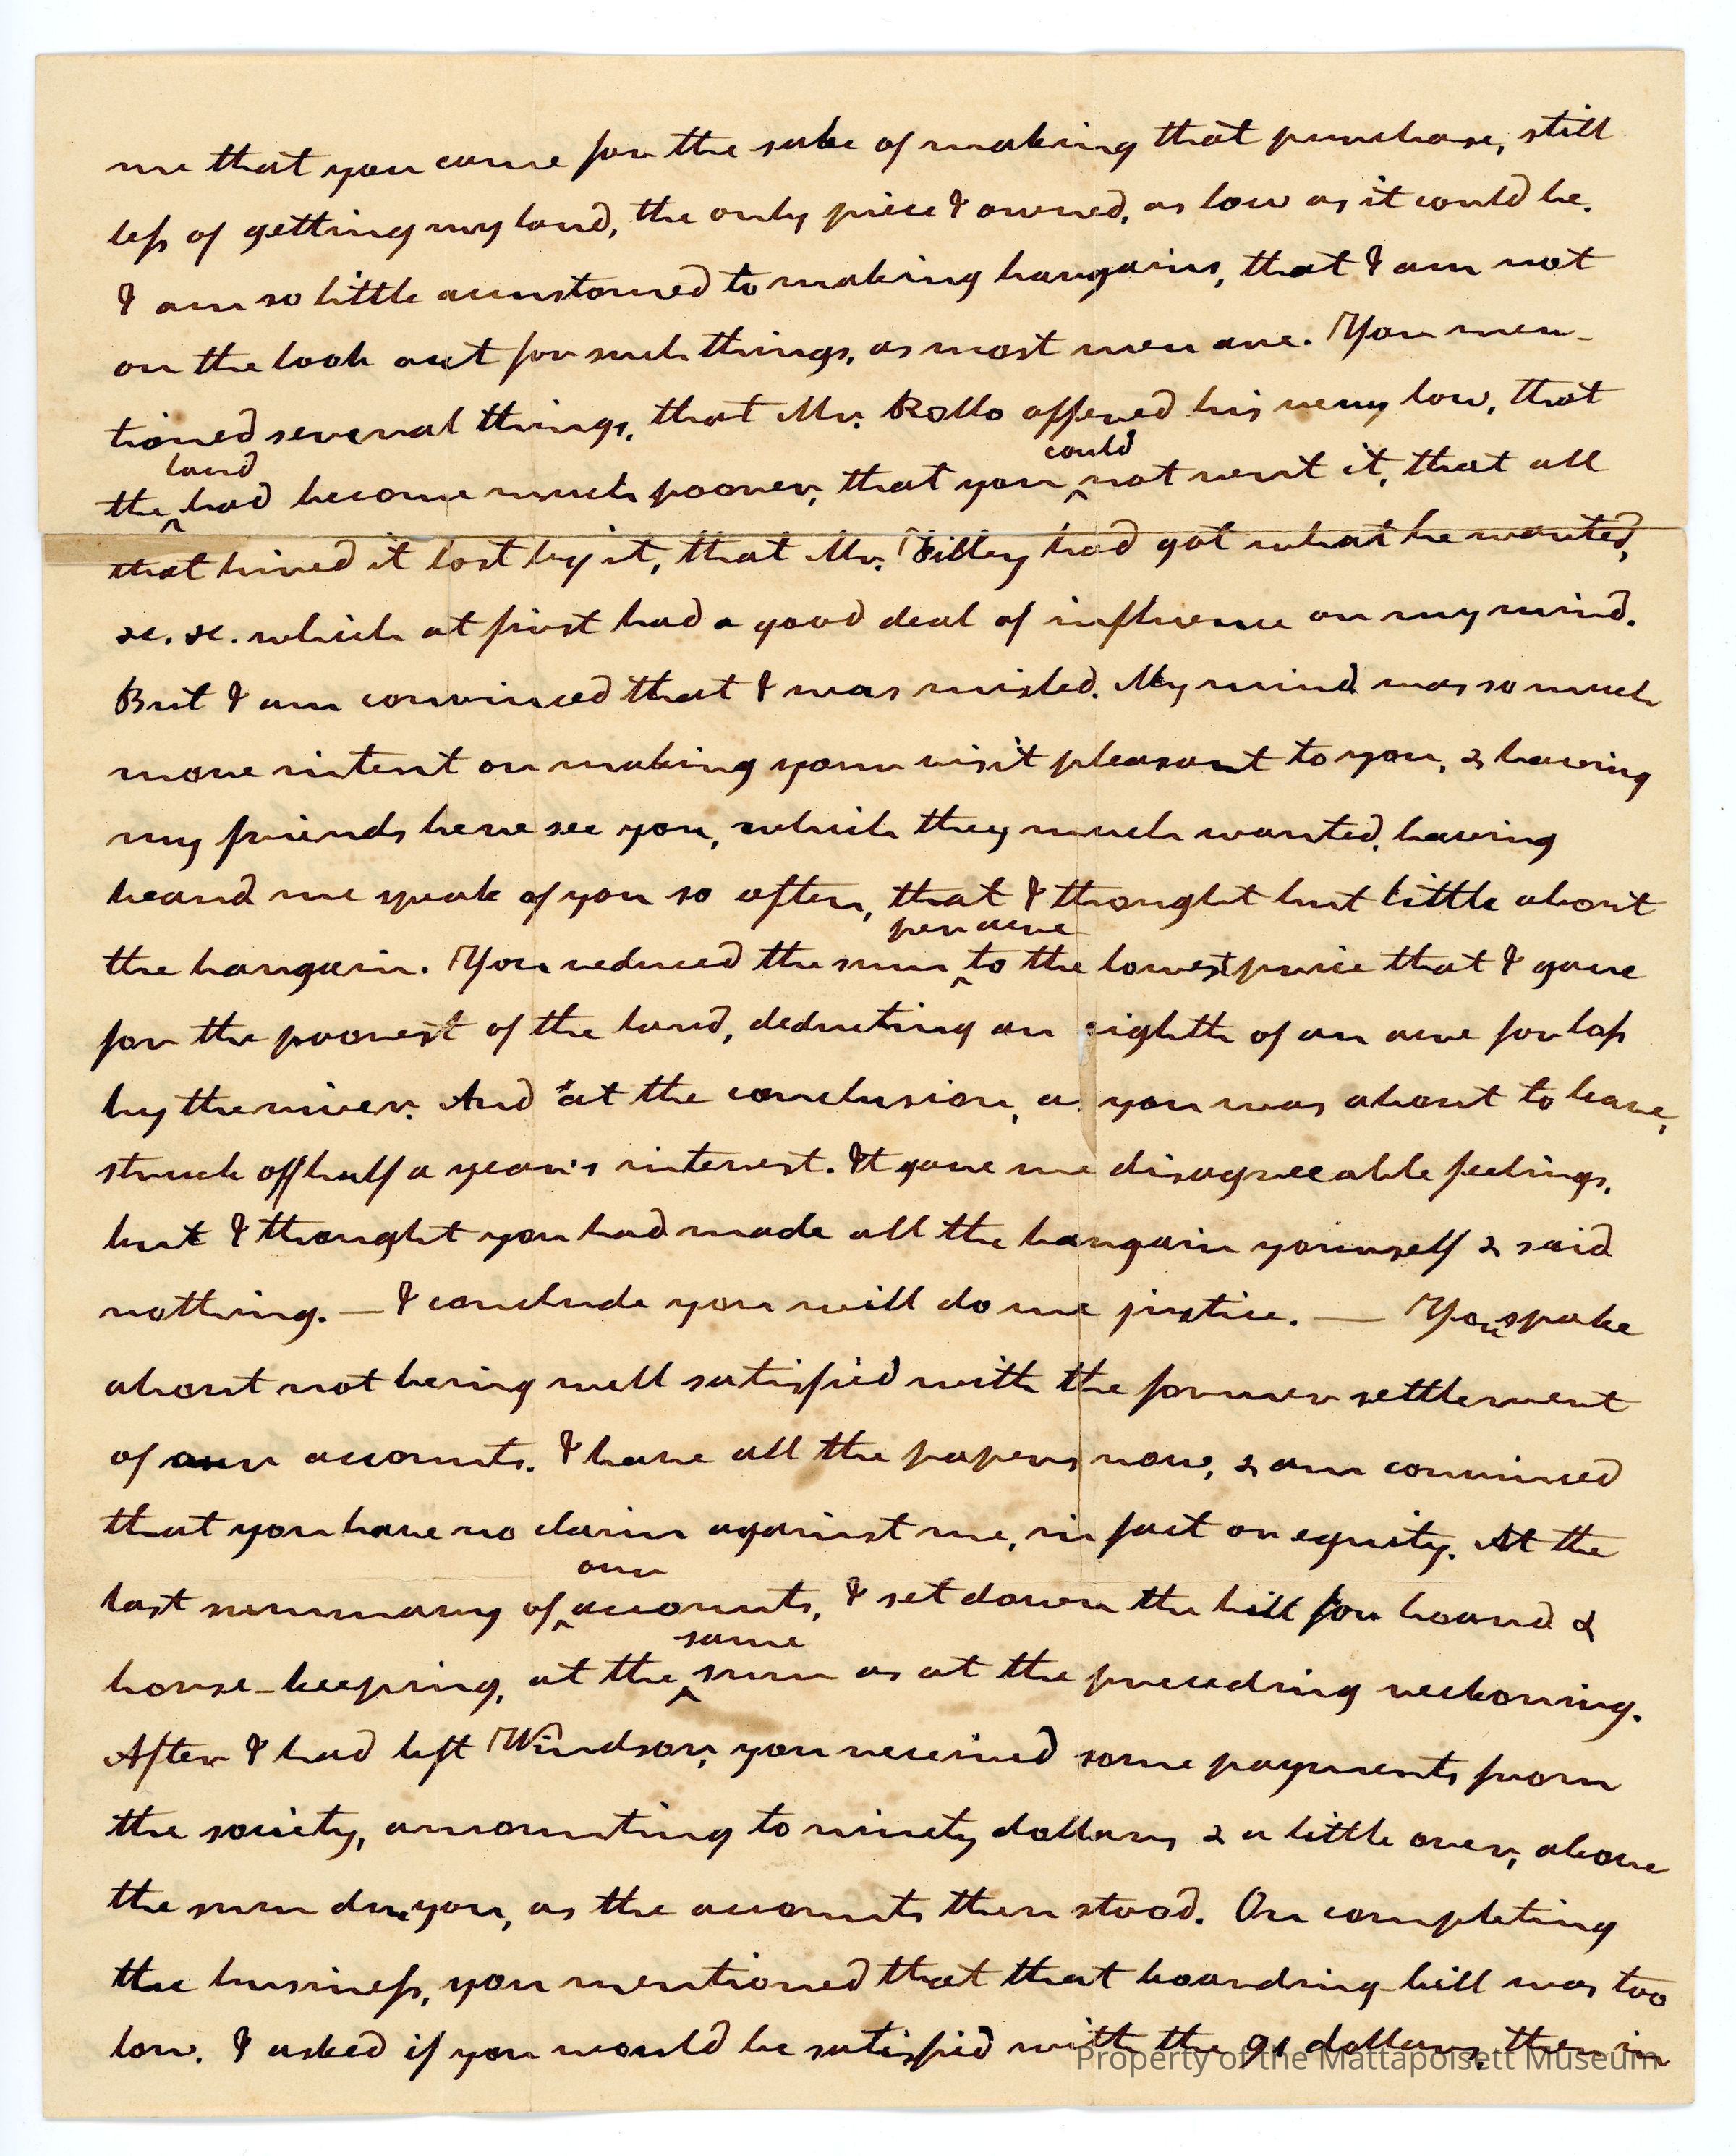 me that you came for the sake of making that purchase, still
less of getting my land, the only piece I owned, as low as it could be.
I am so little accustomed to making bargains, that I am not
on the look out for such things, as most men are. You men-
tioned several things, that Mr. Rollo offered his very low, that
land could
the had become much poorer, that you not rent it, that all
that hired it lost by it, that Mr. Filley had got what he wanted,
&c. &c. which at first had a good deal of influence on my mind.
But I am convinced that I was misled. My mind was so much
more intent on making your visit pleasant to you, & having
my friends here see you, which they much wanted, having
heard me speak of you so often, that I thought but little about
per acre
the bargain. You reduced the sum to the lowest price that I gave
for the poorest of the land, deducting an eighth of an acre for loss
by the river. And at the conclusion, as you was about to leave,
struck off half a year's interest. It gave me disagreeable feelings,
but I thought you had made all the bargain yourself & said
nothing. — I conclude you will do me justice. — You spake
about not being well satisfied with the former settlement
of our accounts. I have all the papers now, & am convinced
that you have no claim against me, in fact or equity. At the
our
last summary of accounts, I set down the bill for board &
same
horse-keeping, at the sum as at the preceding reckoning.
After I had left Windsor, you received some payments from
the society, amounting to ninety dollars & a little over, above
the sum due you, as the accounts then stood. On completing
the business, you mentioned that that boarding-bill was too
low. I asked if you would be satisfied with the 91 dollars, then in
Property of the Mattapoisett Museum